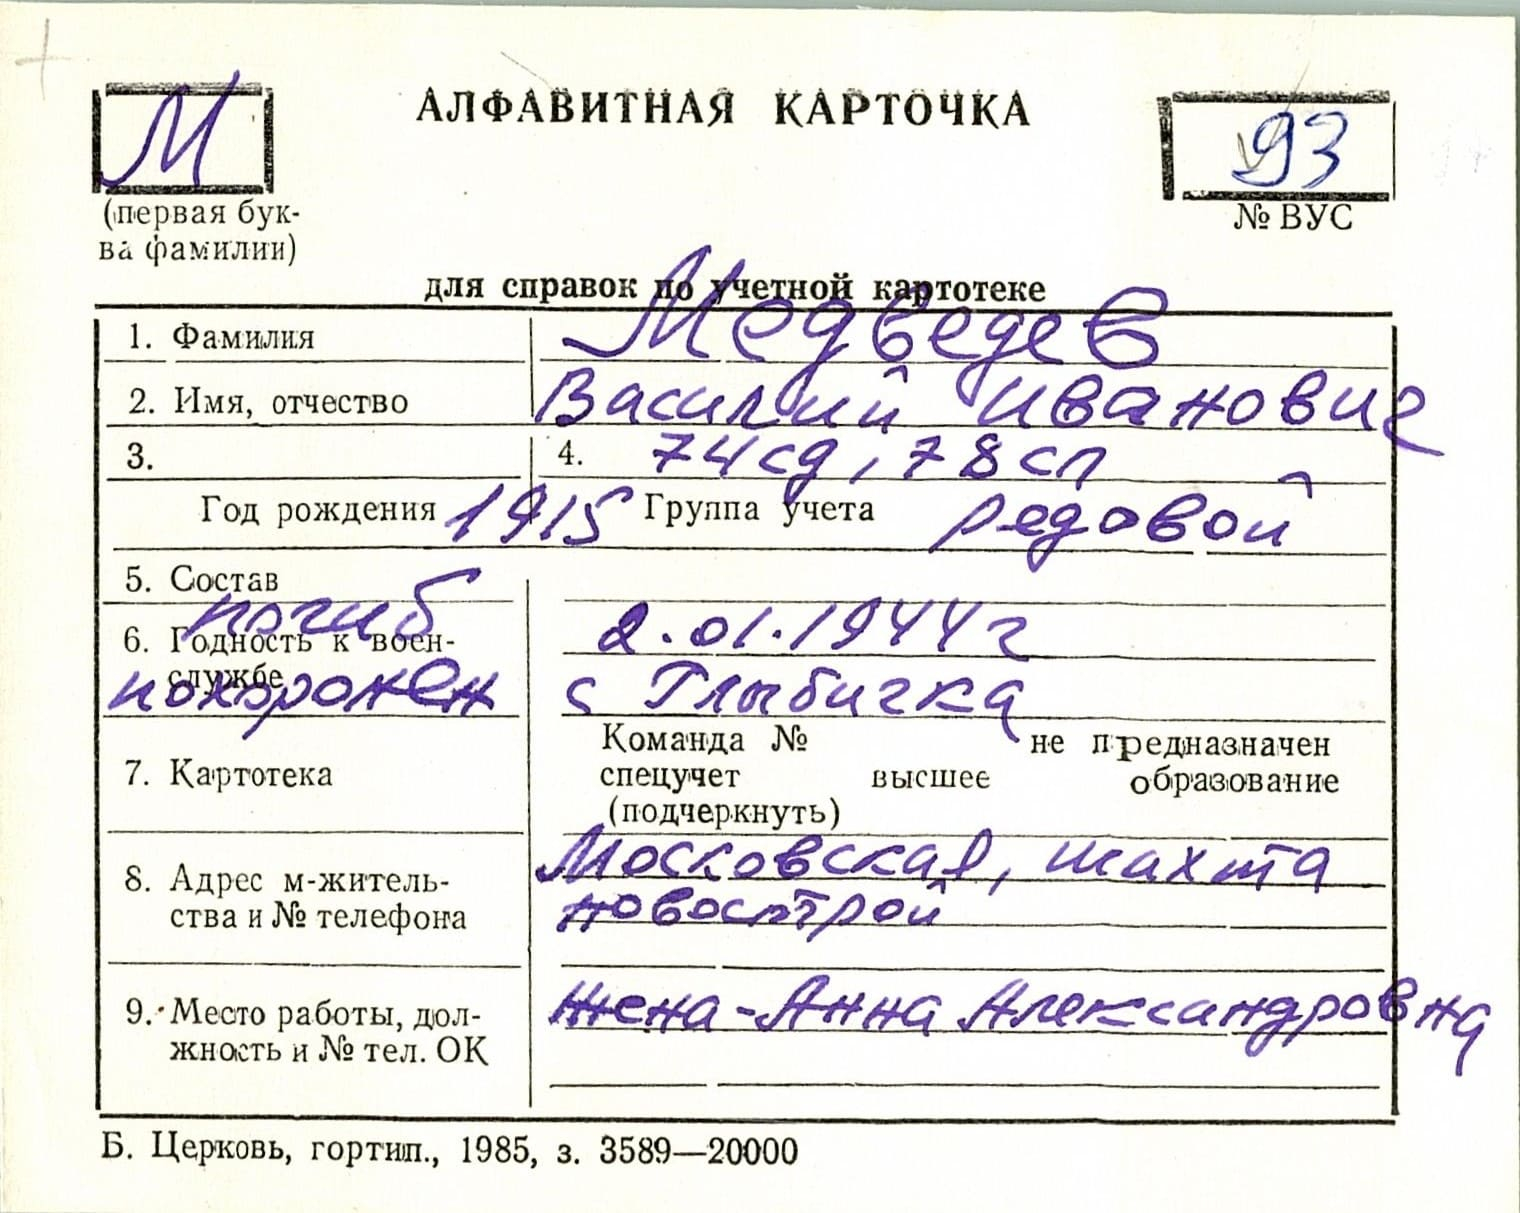 М
АЛФАВИТНАЯ КАРТОЧКА
93
(первая бук-
ва фамилии)
№ ВУС
для справок по учетной картотеке
1. Фамилия Медведев
2. Имя, отчество Василий Иванович
3. 4. 74сд, 78сп
Год рождения 1915 Группа учета редовой
5. Состав
погиб 2.01.1944г
6. Годность к воен-
службе
похоронен с Глыбичка
Команда № не предназначен
7. Картотека спецучет высшее образование
(подчеркнуть)
Московская, шахта
8. Адрес м-житель-
ства и № телефона новострой
9. Место работы, дол- Жена - Анна Александровна
жность и № тел. ОК
Б. Церковь, гортип., 1985, з. 3589—20000